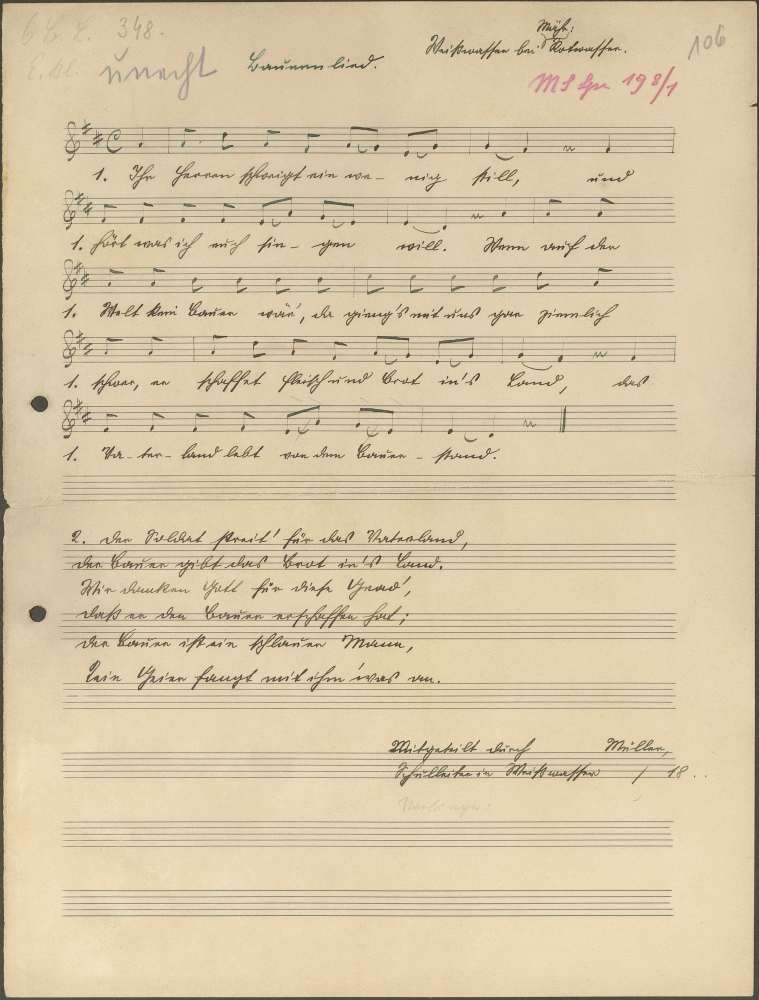 6 L. L. 348.
106
unecht
Bauernlied.
Mähr:
Weißwasser bei Rotwasser.
1. Ihr Herren schweigt ein we- nig still, und
1. hört was ich euch sin- gen will. Wenn auf der
1. Welt kein Bauer wär', da gieng's mit uns gar ziemlich
1. schwer, er schaffet Fleisch und Brot in's Land, das
1. Va- ter- land lebt von dem Bauer- stand.
2. Der Soldat streit' für das Vaterland,
der Bauer gibt das Brot in's Land.
Wir danken Gott für diese Gnad',
daß er den Bauer erschaffen hat;
der Bauer ist ein schlauer Mann,
kein Geier fangt mit ihm 'was an.
Mitgeteilt durch Müller,
Schulleiter in Weißwasser / 18..